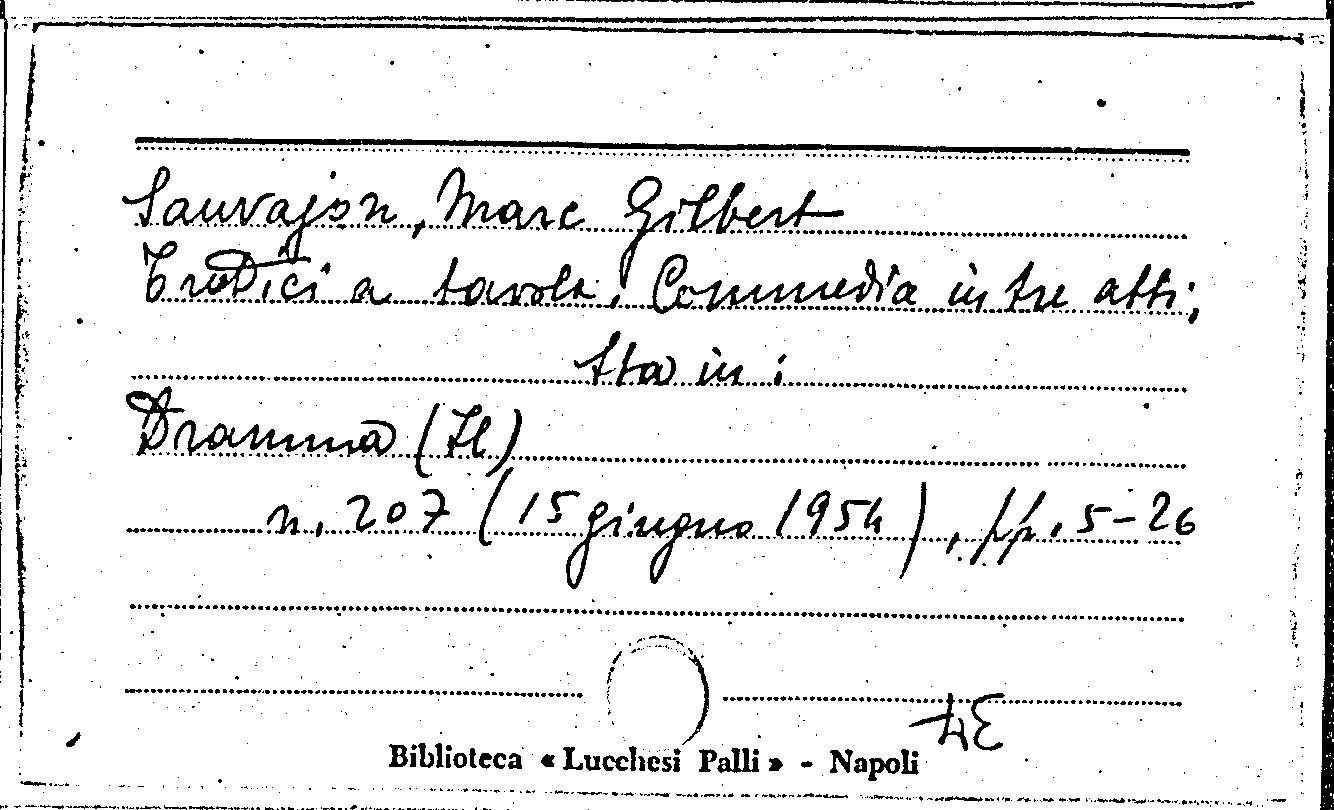 Sauvajon, Marc Gilbert
Tredici a tavola. Commedia in tre atti;
Sta in:
Dramma (Il)
n. 207 (15 giugno 1954), pp. 5-26
Biblioteca « Lucchesi Palli » - Napoli